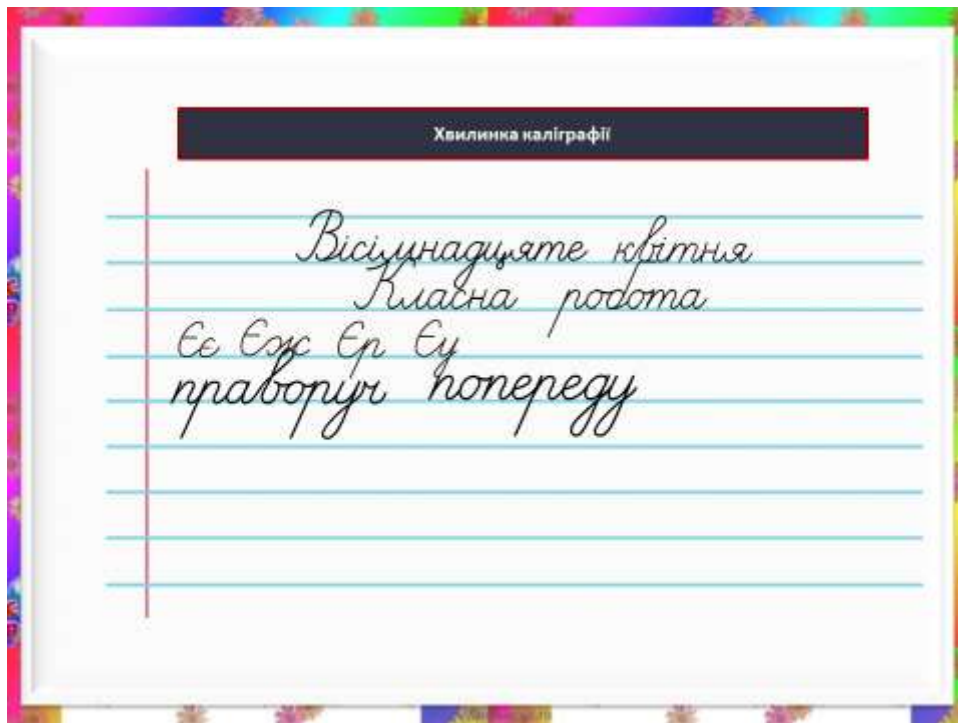 Хвилинка каліграфії
Вісімнадцяте квітня
Класна робота
Єє Єж Єр Єу
праворуч попереду